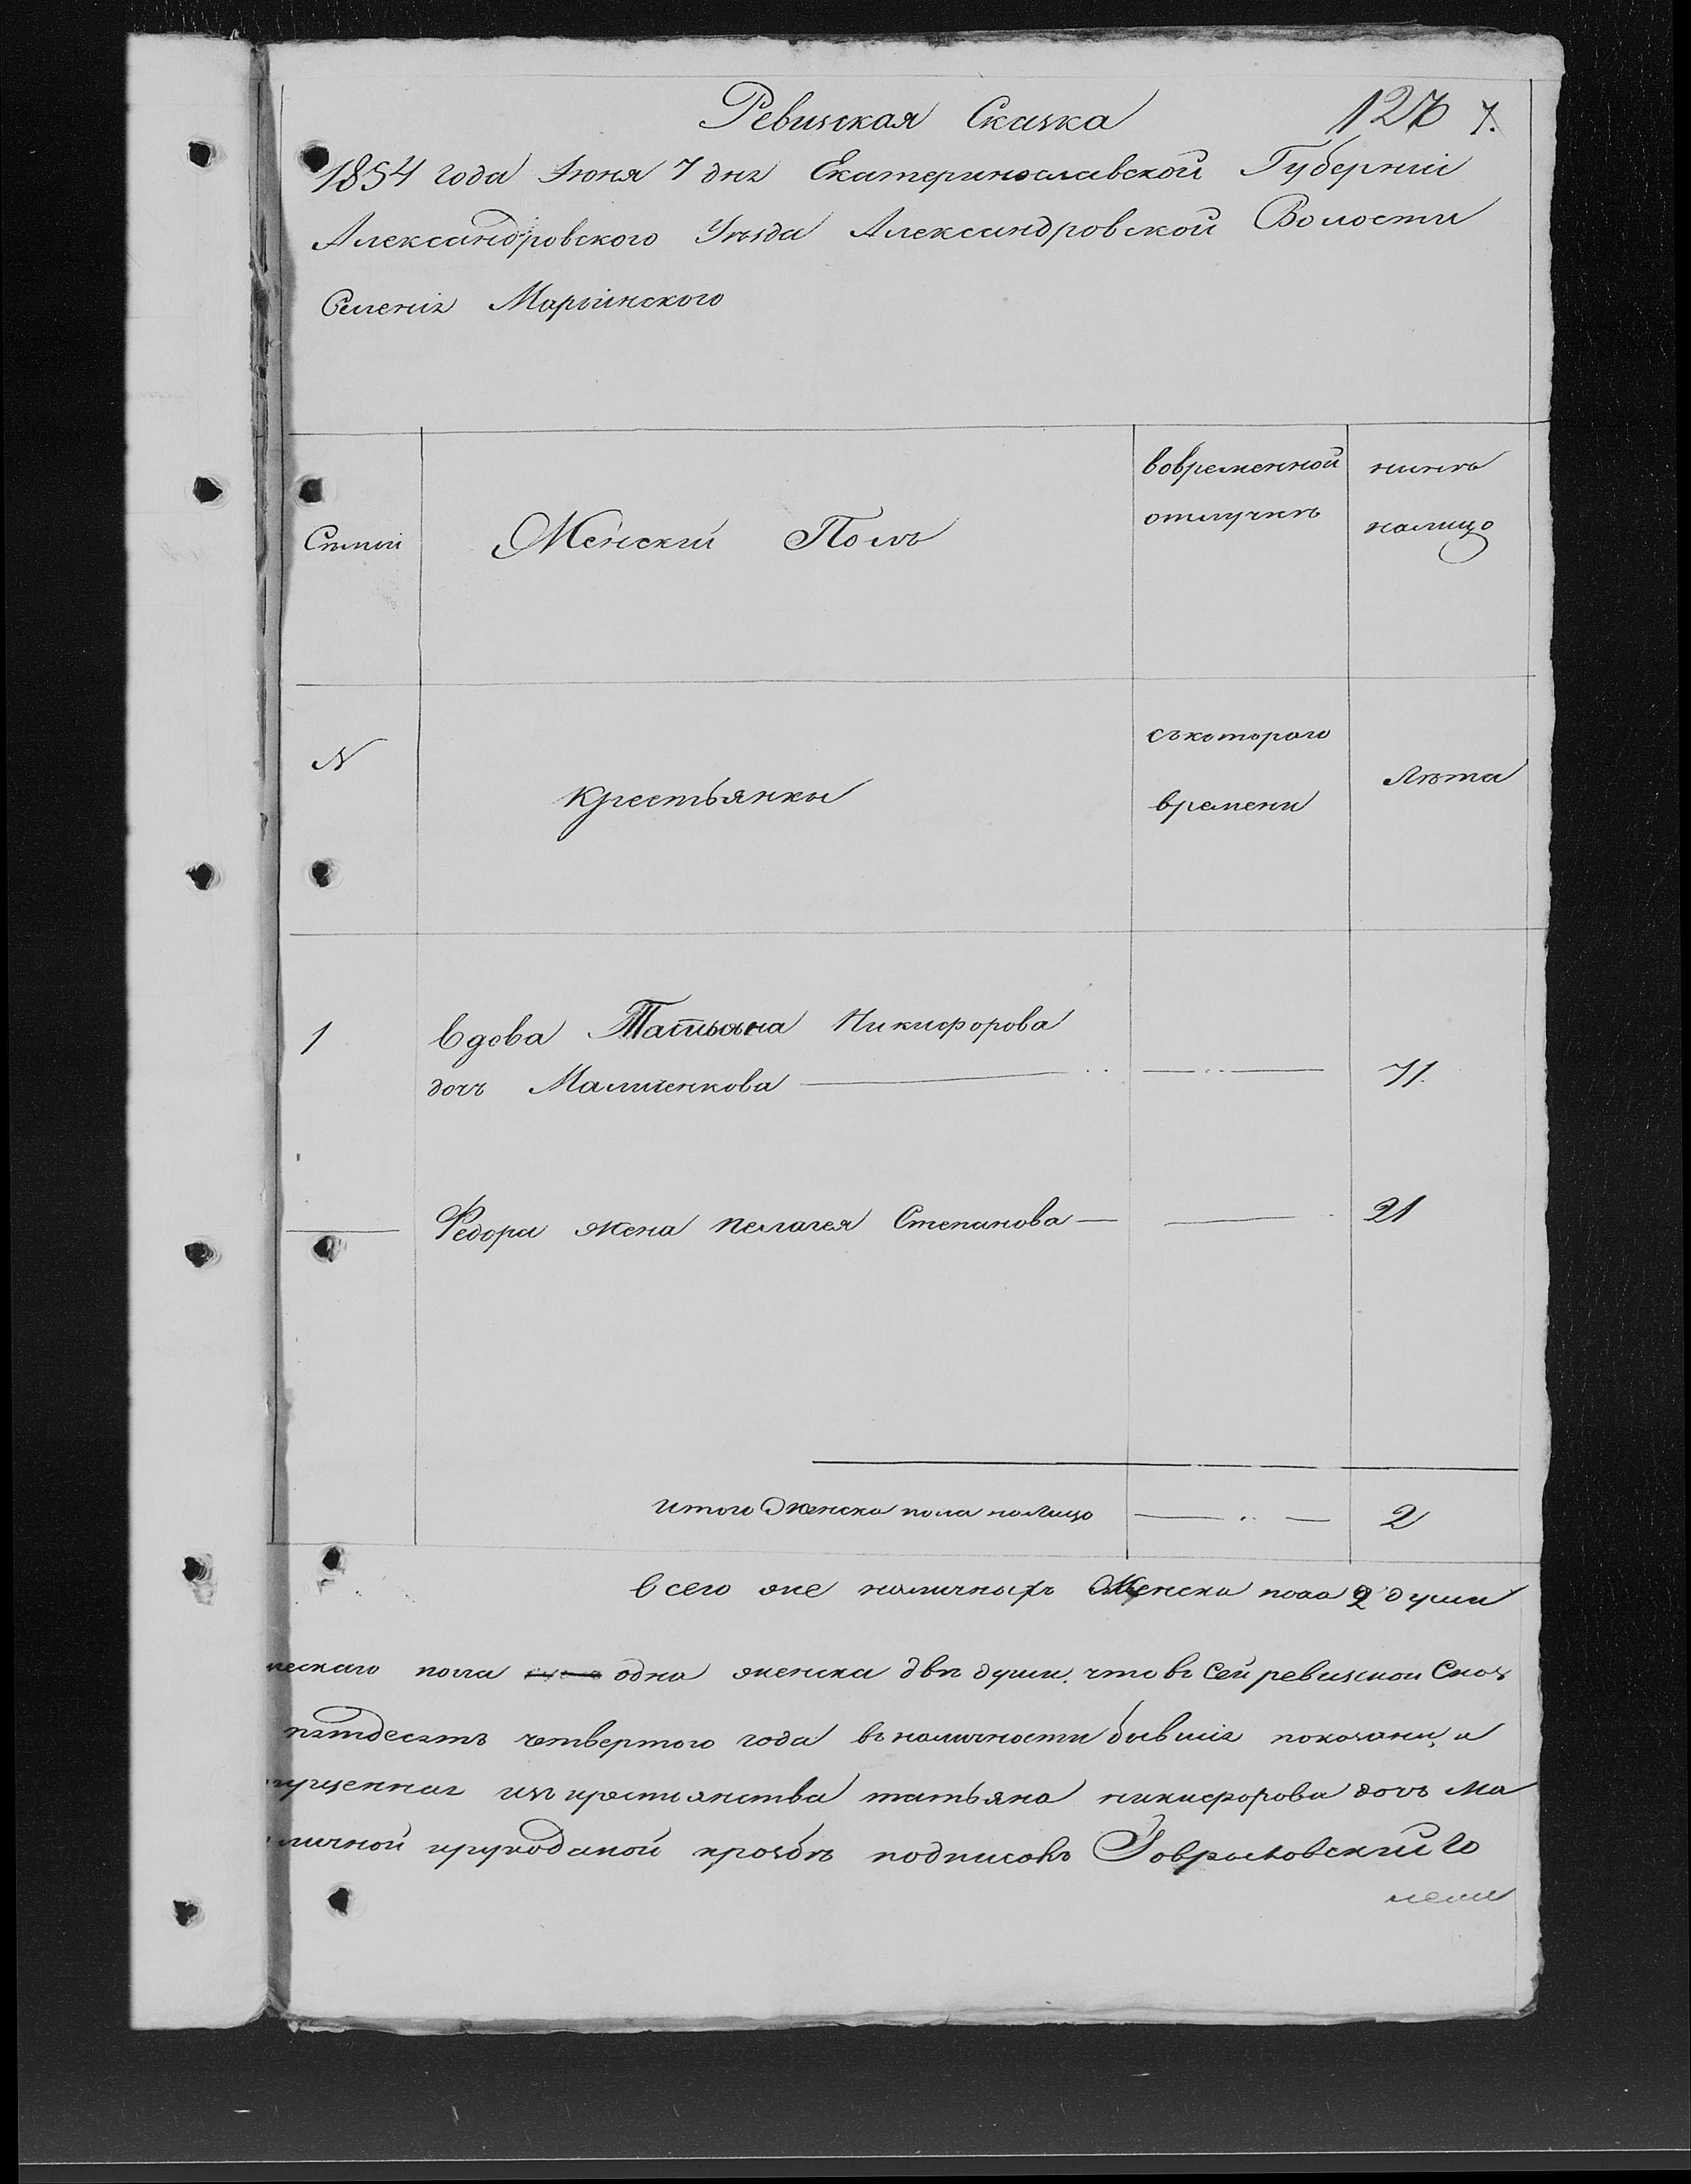 Ревизская Сказка 127 7.
1854 года Июня 7 дня Екатеринославской Губернии
Александровского Уѣзда Александровской Волости
Селенія Марьинского
Сѣмьи
Женский Полъ
вовременной отлучкѣ
нинѣ налицо
N
Крестьянки
съкотораго времени
Лѣта
1 Вдова Татьяна Никифорова
дочь Маличенкова 71.
Федора жена пелагея Степанова 21
итого Женска пола налицо 2
всего же наличныхъ Женска пола 2 души
ческаго пола одна женска двѣ души, что въ сей ревизкои Сказ
пятдесятъ четвертого года въ наличности бывшія показани, а
пущенная изъ крестиянства татьяна никифорова дочь Ма
личной рукоданой прозбѣ подписовъ